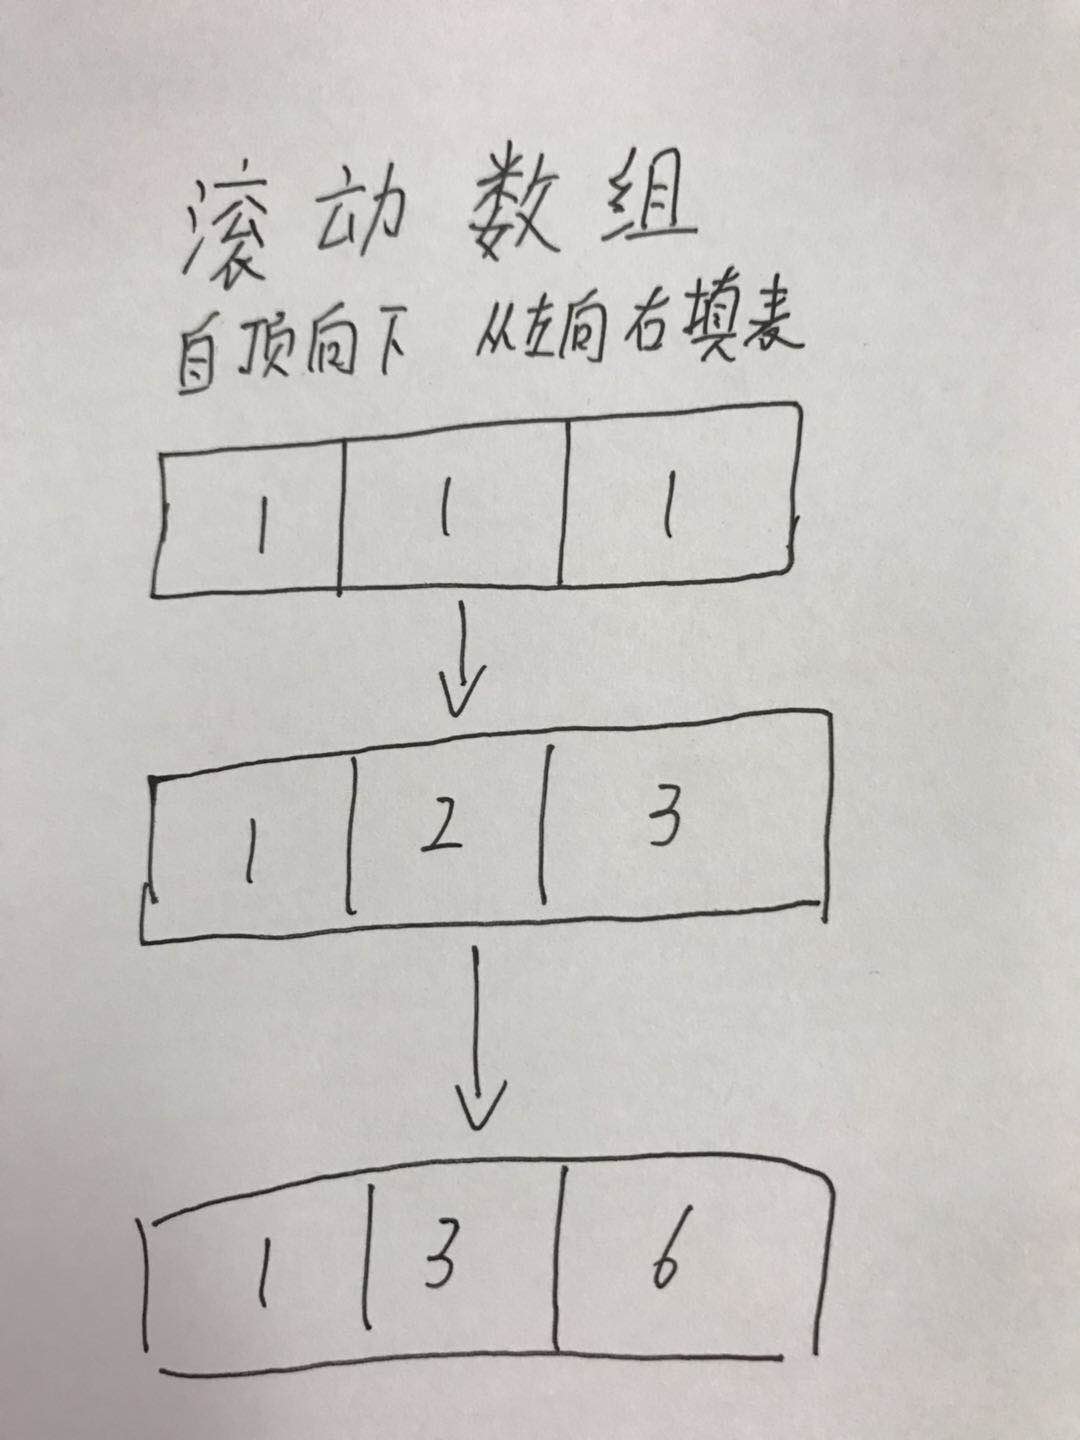 滚动数组
自顶向下 从左向右填表
1 1 1
1 2 3
1 3 6